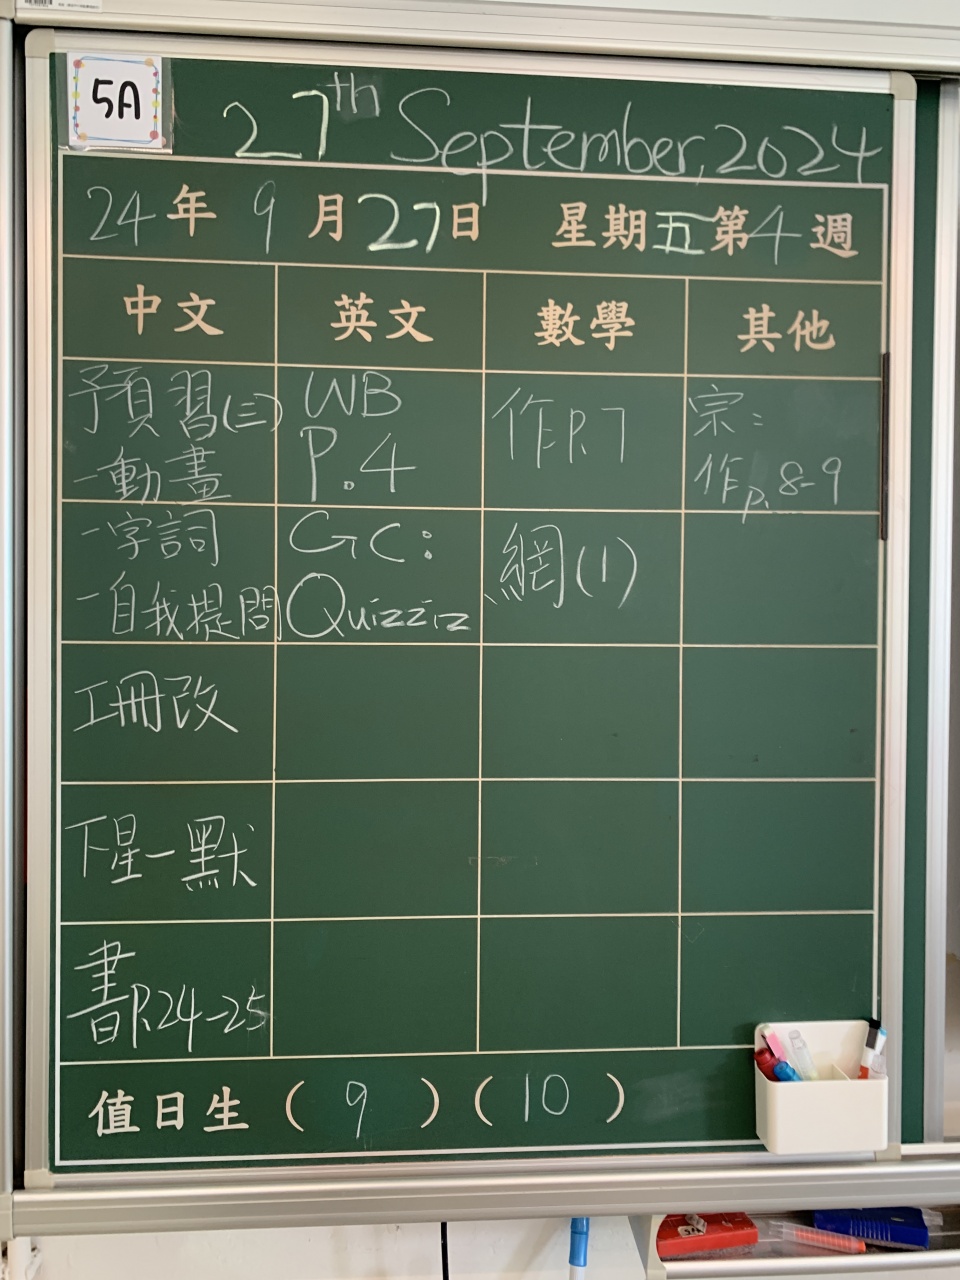 5A
27th September, 2024
24年 9月27日 星期五第4週
中文 英文 數學 其他
預習(三) WB 作P.7 宗:
-動畫 P.4 作p.8-9
-字詞 GC: 網(1)
-自我提問 Quizziz
工冊改
下星一默
書P.24-25
值日生 ( 9 ) ( 10 )